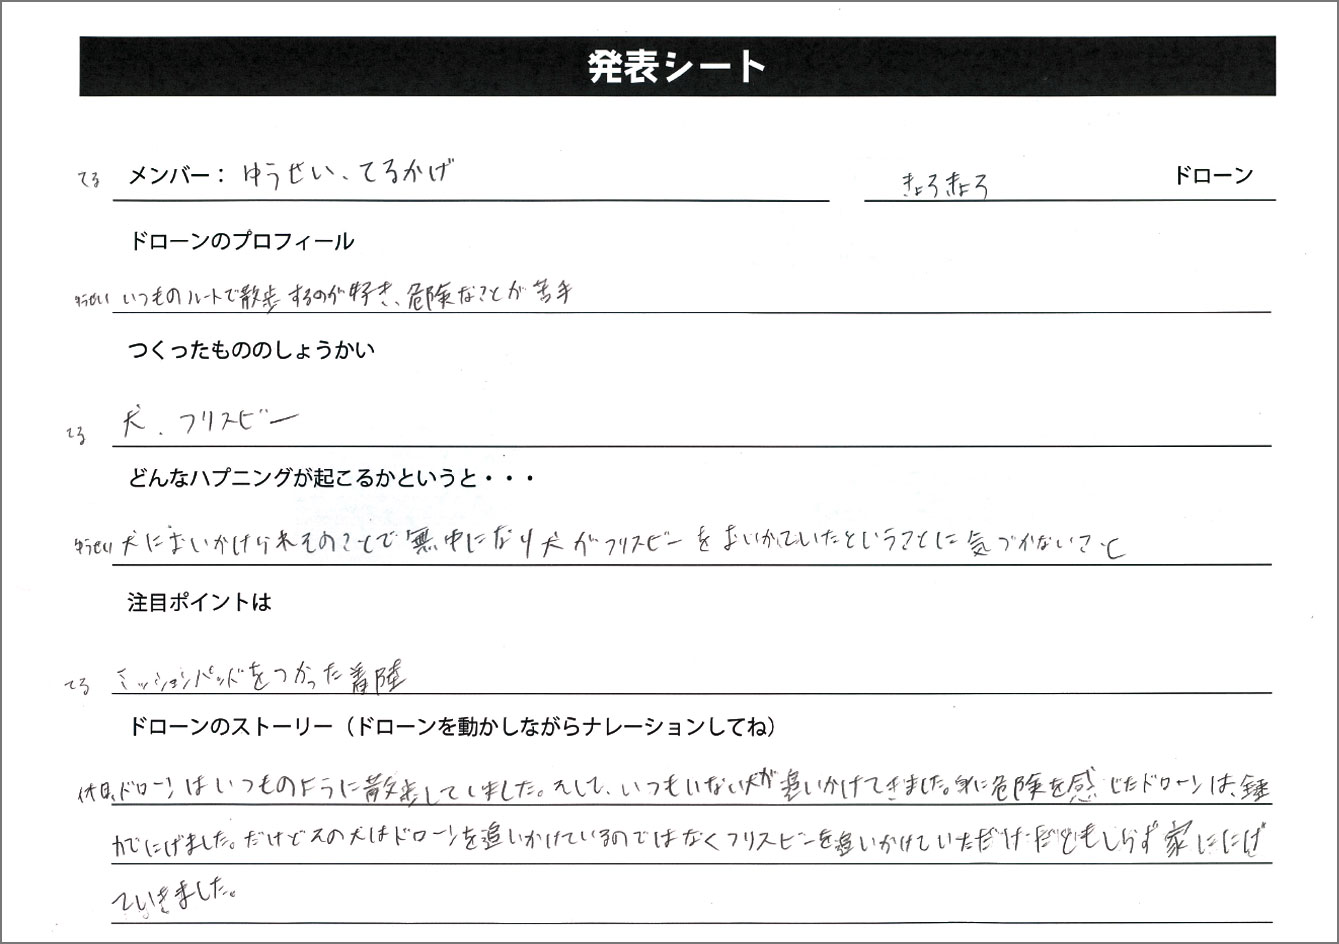 発表シート
てる メンバー： ゆうせい、てるかげ きょろきょろ ドローン
ドローンのプロフィール
ゆうせい いつものルートで散歩するのが好き、危険なことが苦手
つくったもののしょうかい
てる 犬、フリスビー
どんなハプニングが起こるかというと・・・
ゆうせい 犬においかけられそのことで無中になり犬がフリスビーをおいかていたということに気づかないこと
注目ポイントは
てる ミッションパッドをつかった着陸
ドローンのストーリー（ドローンを動かしながらナレーションしてね）
休日、ドローンはいつものように散歩していました。そして、いつもいない犬が追いかけてきました。身に危険を感じたドローンは、
でにげました。だけどその犬はドローンを追いかけているのではなくフリスビーを追いかけていただけだともしらず家ににげ
ていきました。